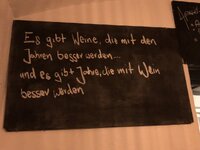 Es gibt Weine, die mit den
Jahren besser werden...
und es gibt Jahre, die mit Wein
besser werden